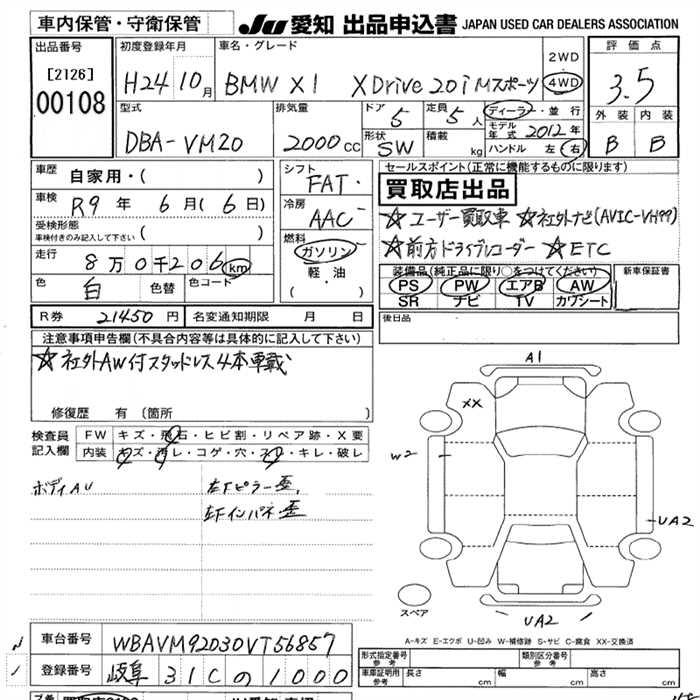 車内保管・守衛保管 JU 愛知 出品申込書 JAPAN USED CAR DEALERS ASSOCIATION
出品番号
[2126]
00108
初度登録年月
H24 10月
車名・グレード
BMW X1 XDrive 20i Mスポーツ
2WD
4WD
評価点
3.5
外装 内装
B B
型式
DBA-VM20
排気量
2000cc
ドア
5
定員
5人
形状
SW
積載
kg
ディーラー・並行
モデル年式 2012年
ハンドル 左 右
車歴
自家用・( )
車検
R9年 6月(6日)
受検形態
車検付きのみ記入して下さい ( )
走行
8万0千206km
色
白
色替
色コード
シフト
FAT・
冷房
AAC
燃料
ガソリン
軽・油
(・)
セールスポイント(正常に機能するものに限ります)
買取店出品
☆ユーザー買取車 ☆社外ナビ(AVIC-VH99)
☆前方ドライブレコーダー ☆ETC
装備品(純正品に限り○をつけてください)
PS PW エアB AW
SR ナビ TV カワシート
新車保証書
R券 21450円 名変通知期限 月 日
後日品
注意事項申告欄(不具合内容等は具体的に記入して下さい)
☆社外AW付スタッドレス4本車載
修復歴 有 〔箇所 〕
検査員
記入欄
FW キズ・飛石・ヒビ割・リペア跡・X要
内装 キズ・汚レ・コゲ・穴・スレ・キレ・破レ
ボディAU
左下ピラー歪,
左下インパネ歪
A1
XX
W2
UA2
UA2
スペア
A-キズ E-エクボ U-凹み W-補修跡 S-サビ C-腐食 XX-交換済
車台番号 WBAVM92030VT56857
登録番号 岐阜 31Cの1000
形式指定番号
参考
類別区分番号
参考
車庫証明用
参考
長さ cm 幅 cm 高さ cm